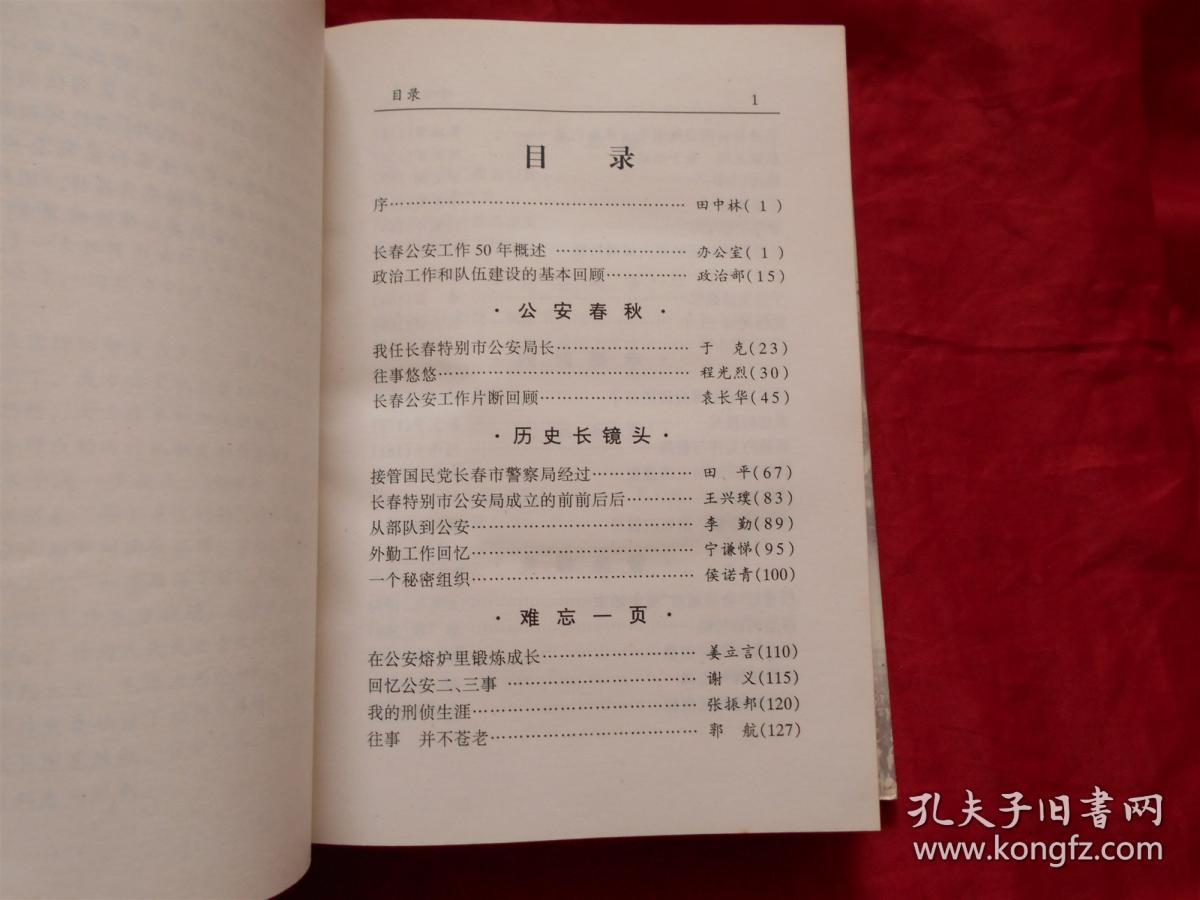 目录 1
目 录
序……………………………………………… 田中林(1)
长春公安工作50年概述 …………………… 办公室(1)
政治工作和队伍建设的基本回顾…………… 政治部(15)
·公安春秋·
我任长春特别市公安局长…………………… 于 克(23)
往事悠悠……………………………………… 程光烈(30)
长春公安工作片断回顾……………………… 袁长华(45)
·历史长镜头·
接管国民党长春市警察局经过……………… 田 平(67)
长春特别市公安局成立的前前后后………… 王兴璞(83)
从部队到公安………………………………… 李 勤(89)
外勤工作回忆………………………………… 宁谦悌(95)
一个秘密组织………………………………… 侯诺青(100)
·难忘一页·
在公安熔炉里锻炼成长……………………… 姜立言(110)
回忆公安二、三事 …………………………… 谢 义(115)
我的刑侦生涯………………………………… 张振邦(120)
往事 并不苍老……………………………… 郭 航(127)
孔夫子旧书网
www.kongfz.com